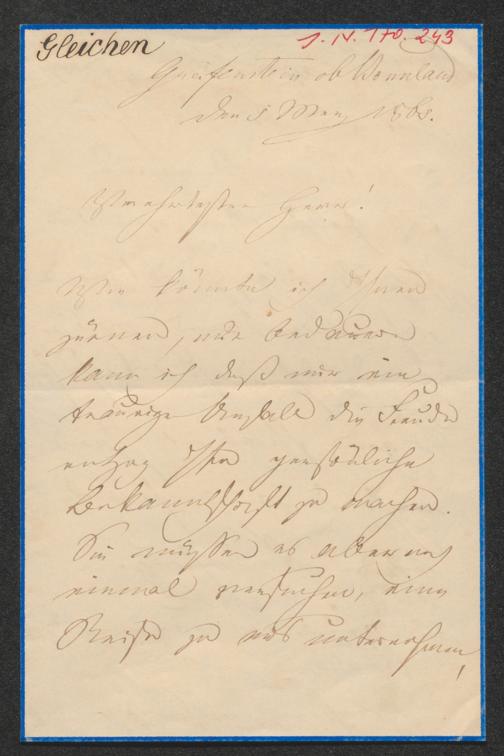 Gleichen
1. N. 170.243
Greifenstein ob Bonnland
den 5 März 186
Verehrtester Herr!
Wie könnte ich Ihnen
zürnen, nur bedauern
kann ich daß mir ein
trauriger die Freude
entzog Ihre persönliche
Bekanntschaft zu machen.
Sie müssen es aber noch
einmal versuchen, eine
Reise zu uns unternehmen,